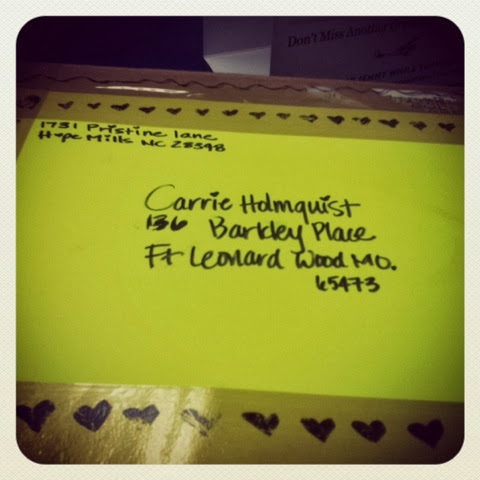 Don't Miss Another
1731 Pristine lane
Hope Mills NC 28348
Carrie Holmquist
136 Barkley Place
Ft Leonard Wood MO.
65473